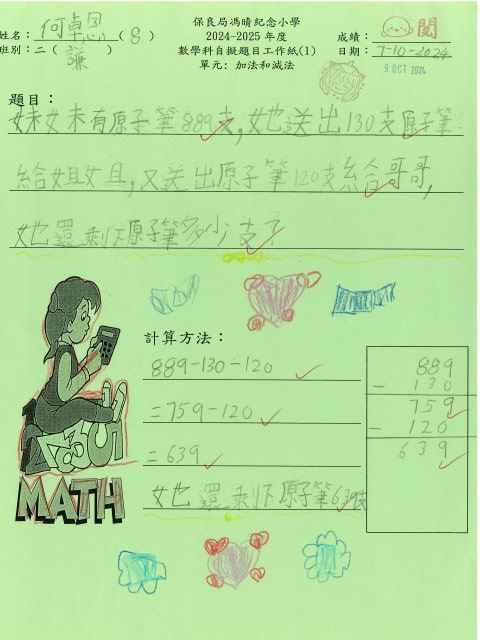 保良局馮晴紀念小學
姓名：何卓恩(8) 2024-2025 年度 成績： 閱
班別：二(謙) 數學科自擬題目工作紙(1) 日期：7-10-2024
單元：加法和減法 9 OCT 2024
題目：
妹妹有原子筆889支，她送出130支原子筆
給姐姐，又送出原子筆120支給哥哥，
她還剩下原子筆多少支？
計算方法：
889-130-120
=759-120
=639
她還剩下原子筆639支
889
- 130
759
- 120
639
MATH